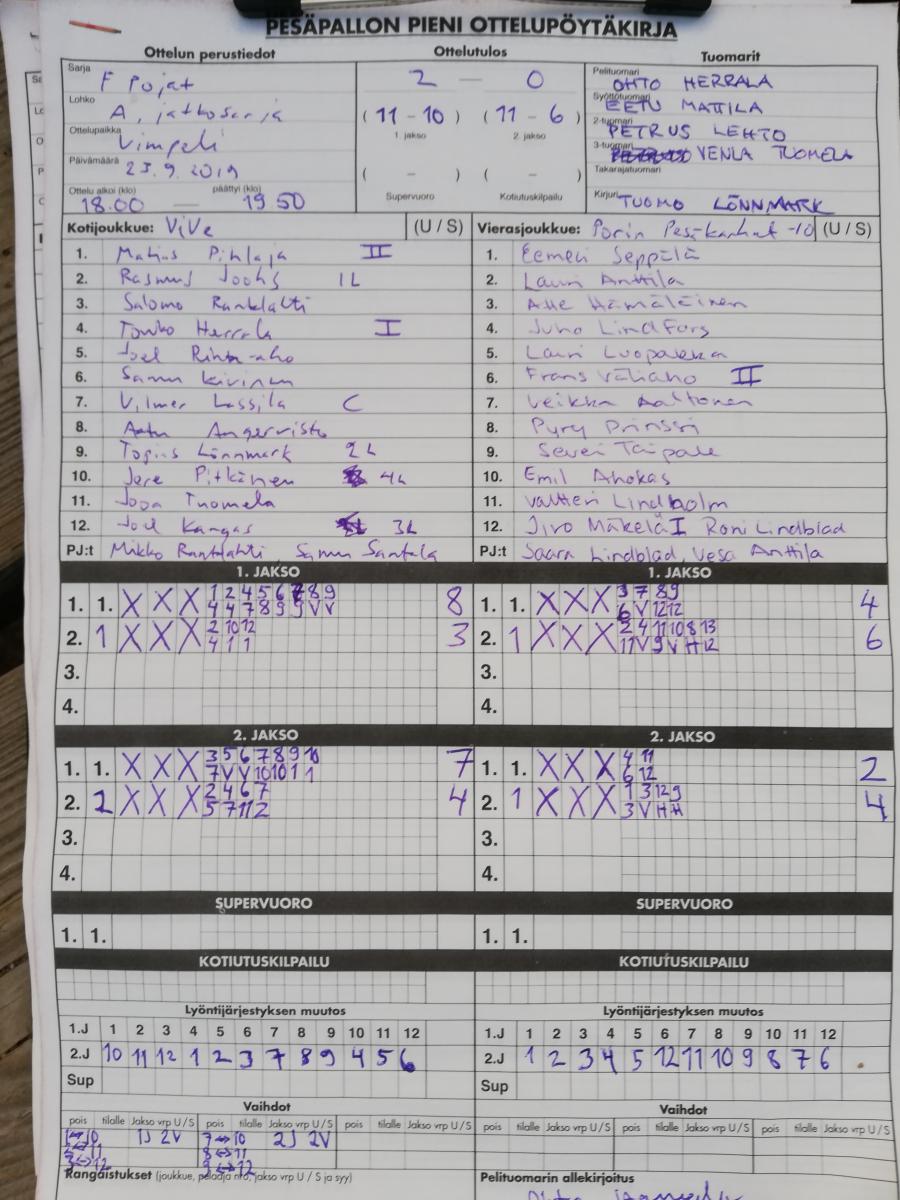 PESÄPALLON PIENI OTTELUPÖYTÄKIRJA
Ottelun perustiedot
Ottelutulos
Tuomarit
Sarja F Pojat
Lohko A, jatkosarja
Ottelupaikka Vimpeli
Päivämäärä 25.9.2019
Ottelu alkoi (klo) 18.00 — päättyi (klo) 19 50
2 — 0
( 11 - 10 ) ( 11 - 6 )
1. jakso 2. jakso
( - ) ( - )
Supervuoro Kotiutuskilpailu
Pelituomari OHTO HERRALA
Syöttötuomari EETU MATTILA
2-tuomari PETRUS LEHTO
3-tuomari VENLA TUOMELA
Takarajatuomari
Kirjuri TUOMO LÖNNMARK
Kotijoukkue: ViVe (U / S)
1. Matias Pihlaja II
2. Rasmus 1L
3. Salomo Rantalahti
4. Touko Herrala I
5. Joel Rinta-aho
6. Samu Kivinen
7. Vilmer Lassila C
8. Angervisto
9. Lönnmark 2L
10. Jere Pitkänen 4L
11. Jopa Tuomela
12. Joel Kangas 3L
PJ:t Mikko Rantalahti Samu Santala
Vierasjoukkue: Porin Pesäkarhut -10 (U / S)
1. Eemeri Seppälä
2. Lauri Anttila
3. Atte Hämäläinen
4. Juho Lindfors
5. Lauri
6. Frans Väliaho II
7. Veikka Aaltonen
8. Pyry Prinssi
9. Severi Taipale
10. Emil Ahokas
11. Valtteri Lindholm
12. Jiro Mäkelä I Roni Lindblad
PJ:t Saara Lindblad, Vesa Anttila
1. JAKSO
1. 1. X X X 1 2 4 5 6 7 8 9 8
4 4 7 8 9 9 V V
2. 1 X X X 2 10 12 3
4 1 1
3.
4.
1. JAKSO
1. 1. X X X 3 7 8 9 4
6 V 12 12
2. 1 X X X 2 4 11 10 8 13 6
11 V 9 V H 12
3.
4.
2. JAKSO
1. 1. X X X 3 5 6 7 8 9 10 7
7 V V 10 10 1 1
2. 2 X X X 2 4 6 7 4
5 7 11 2
3.
4.
2. JAKSO
1. 1. X X X 4 11 2
6 12
2. 1 X X X 1 3 12 9 4
3 V H H
3.
4.
SUPERVUORO
1. 1.
SUPERVUORO
1. 1.
KOTIUTUSKILPAILU
KOTIUTUSKILPAILU
Lyöntijärjestyksen muutos
1.J 1 2 3 4 5 6 7 8 9 10 11 12
2.J 10 11 12 1 2 3 7 8 9 4 5 6
Sup
Lyöntijärjestyksen muutos
1.J 1 2 3 4 5 6 7 8 9 10 11 12
2.J 1 2 3 4 5 12 11 10 9 8 7 6
Sup
Vaihdot
pois tilalle Jakso vrp U / S pois tilalle Jakso vrp U / S pois tilalle Jakso vrp U / S
1↔10 1J 2V 7↔10 2J 2V
2↔11 8↔11
3↔12 9↔12
Vaihdot
pois tilalle Jakso vrp U / S pois tilalle Jakso vrp U / S pois tilalle Jakso vrp U / S
Rangaistukset (joukkue, pelaaja nro, jakso vrp U / S ja syy)
Pelituomarin allekirjoitus